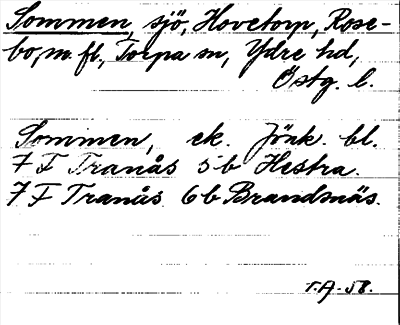 Sommen, sjö, Hovetorp, Rose-
bo, m. fl., Torpa sn, Ydre hd,
Östg. l.
Sommen, ek. Jönk. bl.
7 F Tranås 5 b Hestra.
7 F Tranås 6 b Brandsnäs.
T.A. 58.